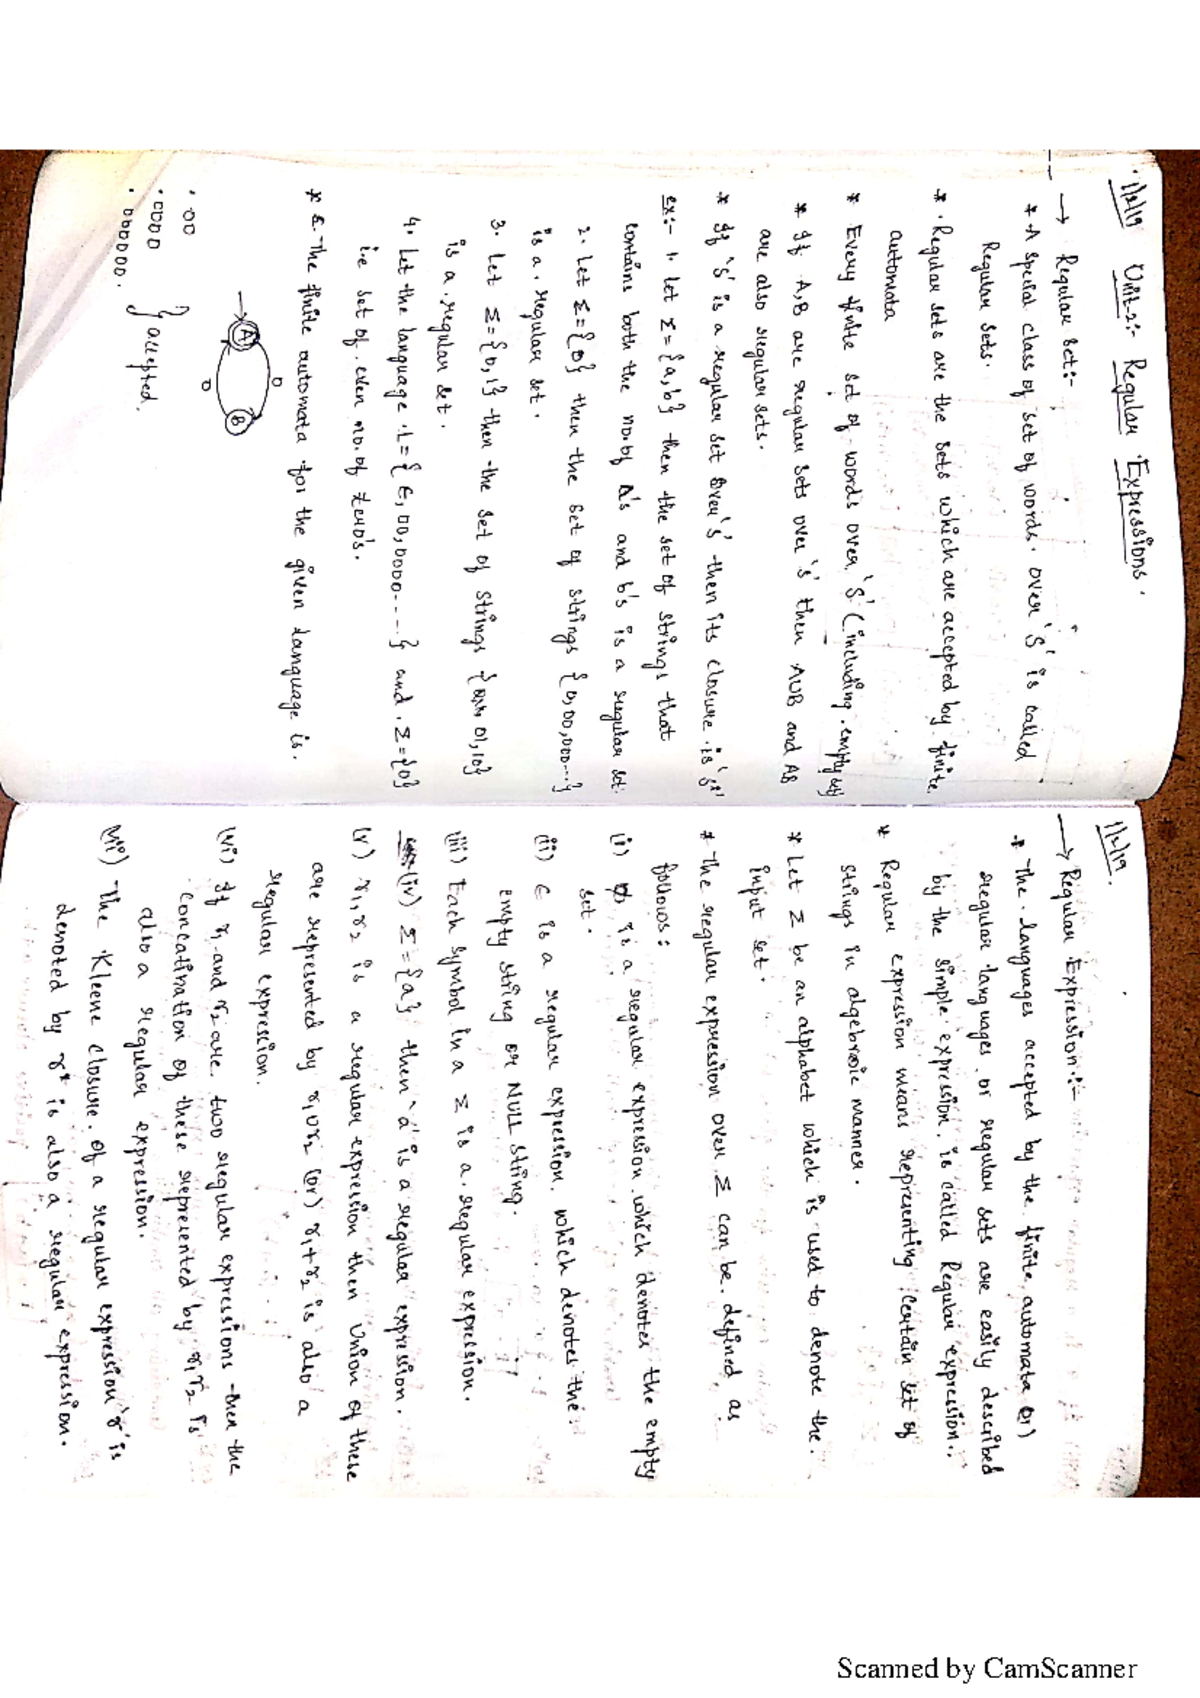 1/2/19 Unit-2:- Regular Expressions.
→ Regular set:-
* A special class of set of words over 's' is called
Regular sets.
* Regular sets are the sets which are accepted by finite
automata
* Every finite set of words over 's' (including empty set)
* If A,B are regular sets over 's' then AUB and AB
are also regular sets.
* If 's' is a regular set over 's' then its closure is 's*'
ex:- 1. let Σ={a,b} then the set of strings that
contains both the no.of a's and b's is a regular set.
2. Let Σ={0} then the set of strings {0,00,000...}
is a regular set.
3. Let Σ={0,1} then the set of strings { 01,10}
is a regular set.
4. Let the language L={ε,00,0000...} and Σ={0}
i.e set of even no.of zero's.
* The finite automata for the given language is.
A B
0
0
. 00
. 0000
. 000000.
} accepted.
1/2/19.
→ Regular Expression:-
* The languages accepted by the finite automata (or)
regular languages or regular sets are easily described
by the simple expression is called Regular expression.
* Regular expression means representing certain set of
strings in algebraic manner.
* Let Σ be an alphabet which is used to denote the
input set.
* The regular expression over Σ can be defined as
follows:
(i) ϕ is a regular expression which denotes the empty
set.
(ii) ε is a regular expression which denotes the
empty string or NULL string.
(iii) Each symbol in a Σ is a regular expression.
(iv) Σ={a} then 'a' is a regular expression.
(v) r1,r2 is a regular expression then union of these
are represented by r1ur2 (or) r1+r2 is also a
regular expression.
(vi) If r1 and r2 are two regular expressions then the
concatination of these represented by r1r2 is
also a regular expression.
(vii) The Kleene closure of a regular expression 'r' is
denoted by r* is also a regular expression.
Scanned by CamScanner